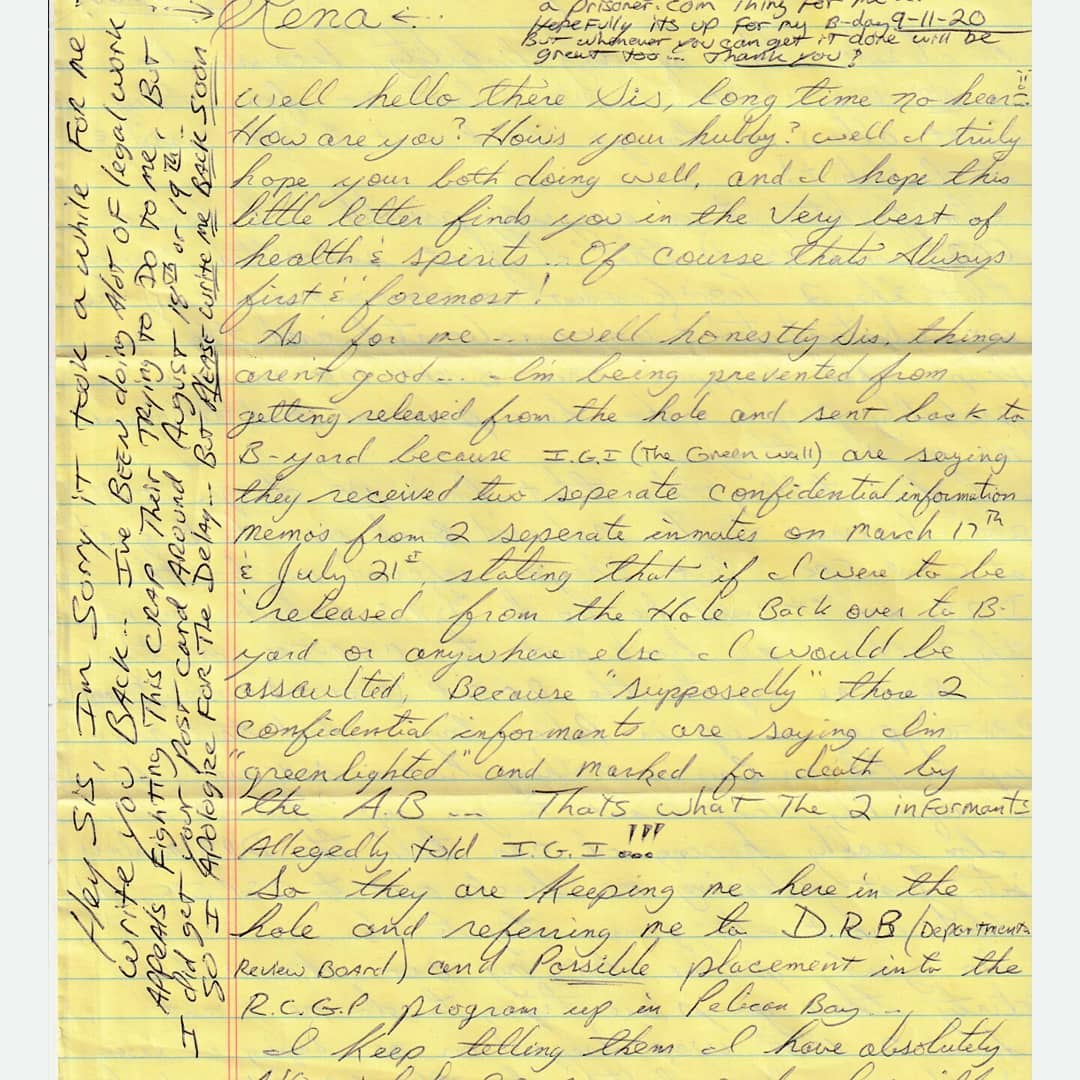 Rena
a prisoner.com Thing for me
Hopefully its up for my B-day 9-11-20
But whenever you can get it done will be
great too... Thank you!
Well hello there Sis, long time no hear!
How are you? How's your hubby? well I truly
hope your both doing well, and I hope this
little letter finds you in the very best of
health & spirits... Of course thats Always
first & foremost!
As for me... well honestly Sis, things
aren't good... I'm being prevented from
getting released from the hole and sent back to
B-yard because I.G.I (The Green wall) are saying
they received two seperate confidential information
memo's from 2 seperate inmates on March 17th
& July 21st, stating that if I were to be
released from the Hole Back over to B-
yard or anywhere else I would be
assaulted, Because "supposedly" those 2
confidential informants are saying I'm
"green lighted" and marked for death by
the A.B... Thats what The 2 informants
Allegedly told I.G.I...!!!
So they are Keeping me here in the
hole and referring me to D.R.B (Departmental
Review Board) and Possible placement into the
R.C.G.P program up in Pelican Bay...
I Keep telling them I have absolutely
Hey Sis, I'm Sorry it took a while For me To
write you BACK... I've BEEN doing Alot OF legal work
APPEALS Fighting This CRAP Their TRying to Do To me, But
I did get your post card AROUND August 18th or 19th...
So I Apologize FOR The Delay... But PLEASE write me BACK Soon